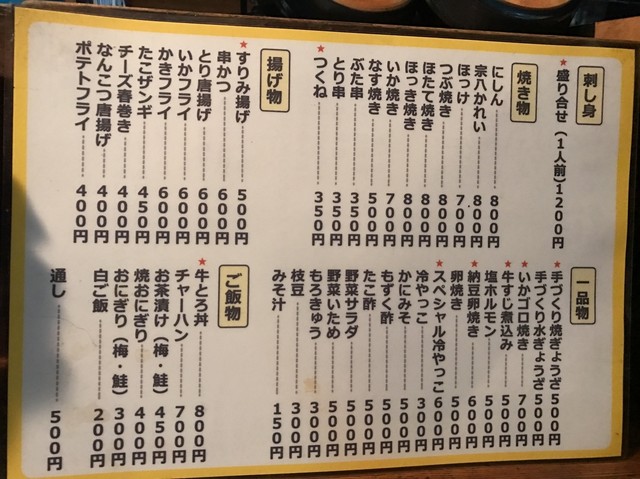 刺し身
★盛り合せ（1人前）1200円
焼き物
にしん 800円
宗八かれい 800円
ほっけ 700円
つぶ焼き 800円
ほたて焼き 800円
ほっき焼き 800円
いか焼き 700円
なす焼き 500円
ぶた串 350円
とり串 350円
★つくね 350円
揚げ物
★すりみ揚げ 500円
串かつ 600円
とり唐揚げ 600円
いかフライ 600円
かきフライ 600円
たこザンギ 450円
チーズ春巻き 400円
なんこつ唐揚げ 400円
ポテトフライ 400円
一品物
★手づくり焼ぎょうざ 500円
手づくり水ぎょうざ 500円
★いかゴロ焼き 700円
★牛すじ煮込み 500円
塩ホルモン 500円
★納豆卵焼き 600円
卵焼き 500円
★スペシャル冷やっこ 600円
冷やっこ 300円
かにみそ 500円
もずく酢 500円
たこ酢 500円
野菜サラダ 500円
野菜いため 500円
もろきゅう 300円
枝豆 300円
みそ汁 150円
ご飯物
★牛とろ丼 800円
チャーハン 700円
お茶漬け（梅・鮭） 450円
焼おにぎり 400円
おにぎり（梅・鮭） 300円
白ご飯 200円
通し 500円